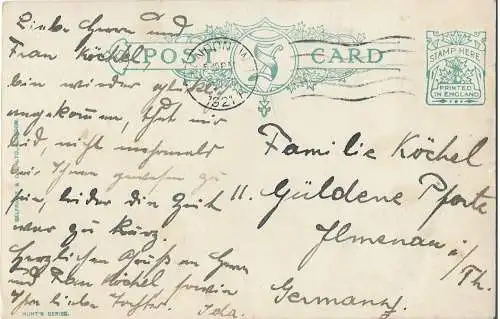 Liebe Herrn und
Frau Köchel,
bin wieder glücklich
angekommen, that mir
leid, nicht nochmals
bei Ihnen gewesen zu
sein, leider die Zeit
war zu kurz.
Herzlichen Gruß an Herrn
und Frau Köchel sowie
Ihre liebe Tochter. Ida.
HUNT'S SERIES.
POST CARD
LONDON. W.
1921
STAMP HERE
PRINTED
IN ENGLAND
Familie Köchel
11. Güldene Pforte
Ilmenau i/Th.
Germany